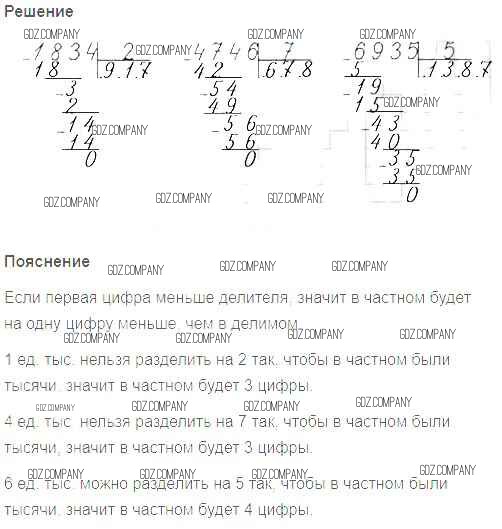 Решение
GDZ.COMPANY GDZ.COMPANY GDZ.COMPANY GDZ.COMPANY
1834 2 4746 7 6935 5
18 9.1.7 42 6.7.8 5 1.3.8.7
3 54 19
2 49 15
14 GDZ.COMPANY 56 GDZ.COMPANY 43 GDZ.COMPANY
14 56 40
0 0 35 GDZ.COMPANY
35
0
GDZ.COMPANY GDZ.COMPANY GDZ.COMPANY
Пояснение
GDZ.COMPANY GDZ.COMPANY GDZ.COMPANY
Если первая цифра меньше делителя, значит в частном будет
на одну цифру меньше, чем в делимом
GDZ.COMPANY GDZ.COMPANY GDZ.COMPANY GDZ.COMPANY
1 ед. тыс. нельзя разделить на 2 так, чтобы в частном были
тысячи, значит в частном будет 3 цифры.
GDZ.COMPANY GDZ.COMPANY GDZ.COMPANY GDZ.COMPANY
4 ед. тыс. нельзя разделить на 7 так, чтобы в частном были
тысячи, значит в частном будет 3 цифры.
GDZ.COMPANY GDZ.COMPANY GDZ.COMPANY GDZ.COMPANY
6 ед. тыс. можно разделить на 5 так, чтобы в частном были
тысячи, значит в частном будет 4 цифры.